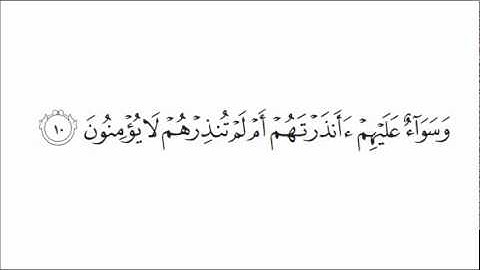 وَسَوَآءٌ عَلَيْهِمْ ءَأَنذَرْتَهُمْ أَمْ لَمْ تُنذِرْهُمْ لَا يُؤْمِنُونَ ١٠